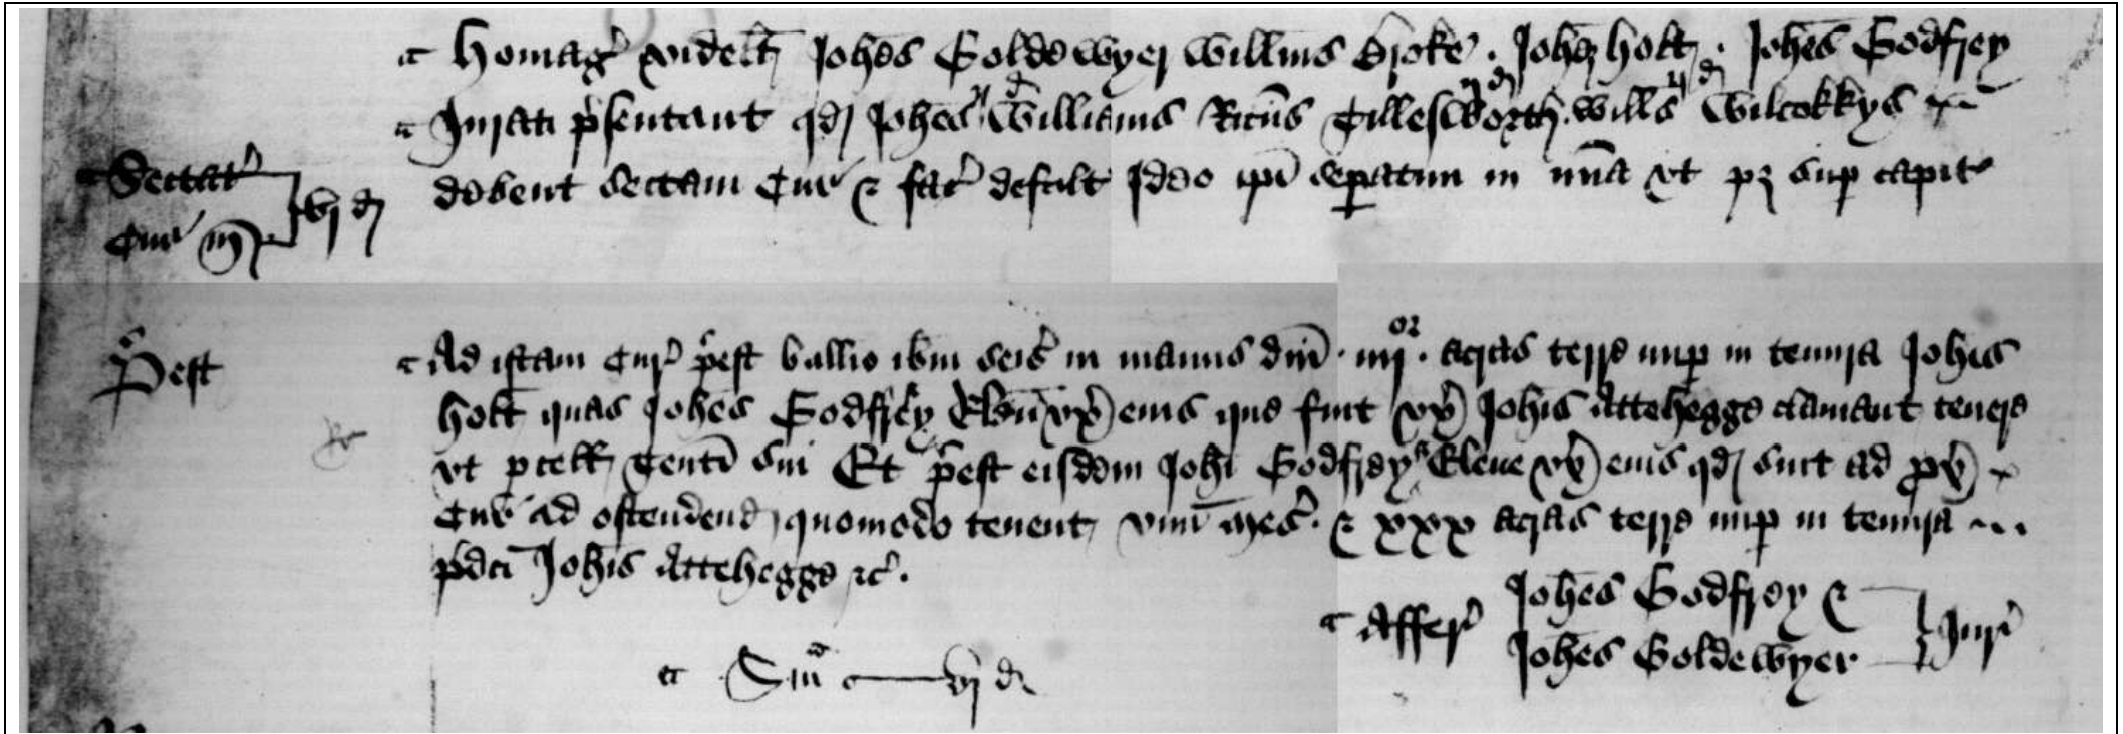 Homag' videlt Johes Goldewyer Willms Broke . Johes Holt . Johes Godfrey
ij d ij d ij d
Jurati p'sentant qd Johes Williams Ricus Tillesworth Wills Wilcokkys
Sectat' debent sectam Cur' & fac' defalt Ideo ipi sepatim in mia vt pz sup capit'
Cur' vj d
P'cept Ad istam Cur' p'cept ballio ibm seis' in manus dni . iiij or . acras terre nup in tenura Johis
Holt quas Johes Godfrey Elen vx' eius que fuit vx' Johis Attehegge clamant tenere
vt pcell ten sui Et p'cept eisdem Johi Godfrey & Elene vx' eius qd sint ad px'
Cur' ad ostendend quomodo tenent vnu mes' . & xxx acras terre nup in tenura
p'dci Johis Attehegge &c' .
Affer' Johes Godfrey & Jur'
Johes Goldewyer
Sm a vj d